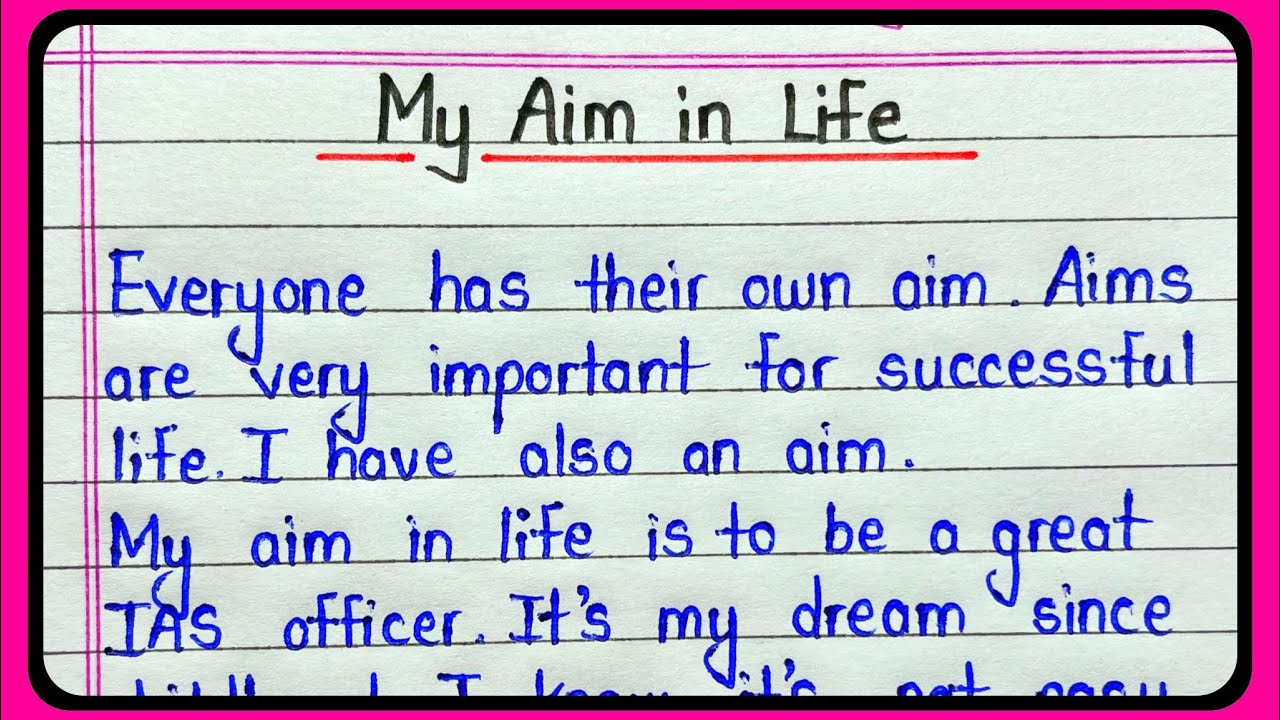 My Aim in Life
Everyone has their own aim. Aims
are very important for successful
life. I have also an aim.
My aim in life is to be a great
IAS officer. It's my dream since
I know it's not easy